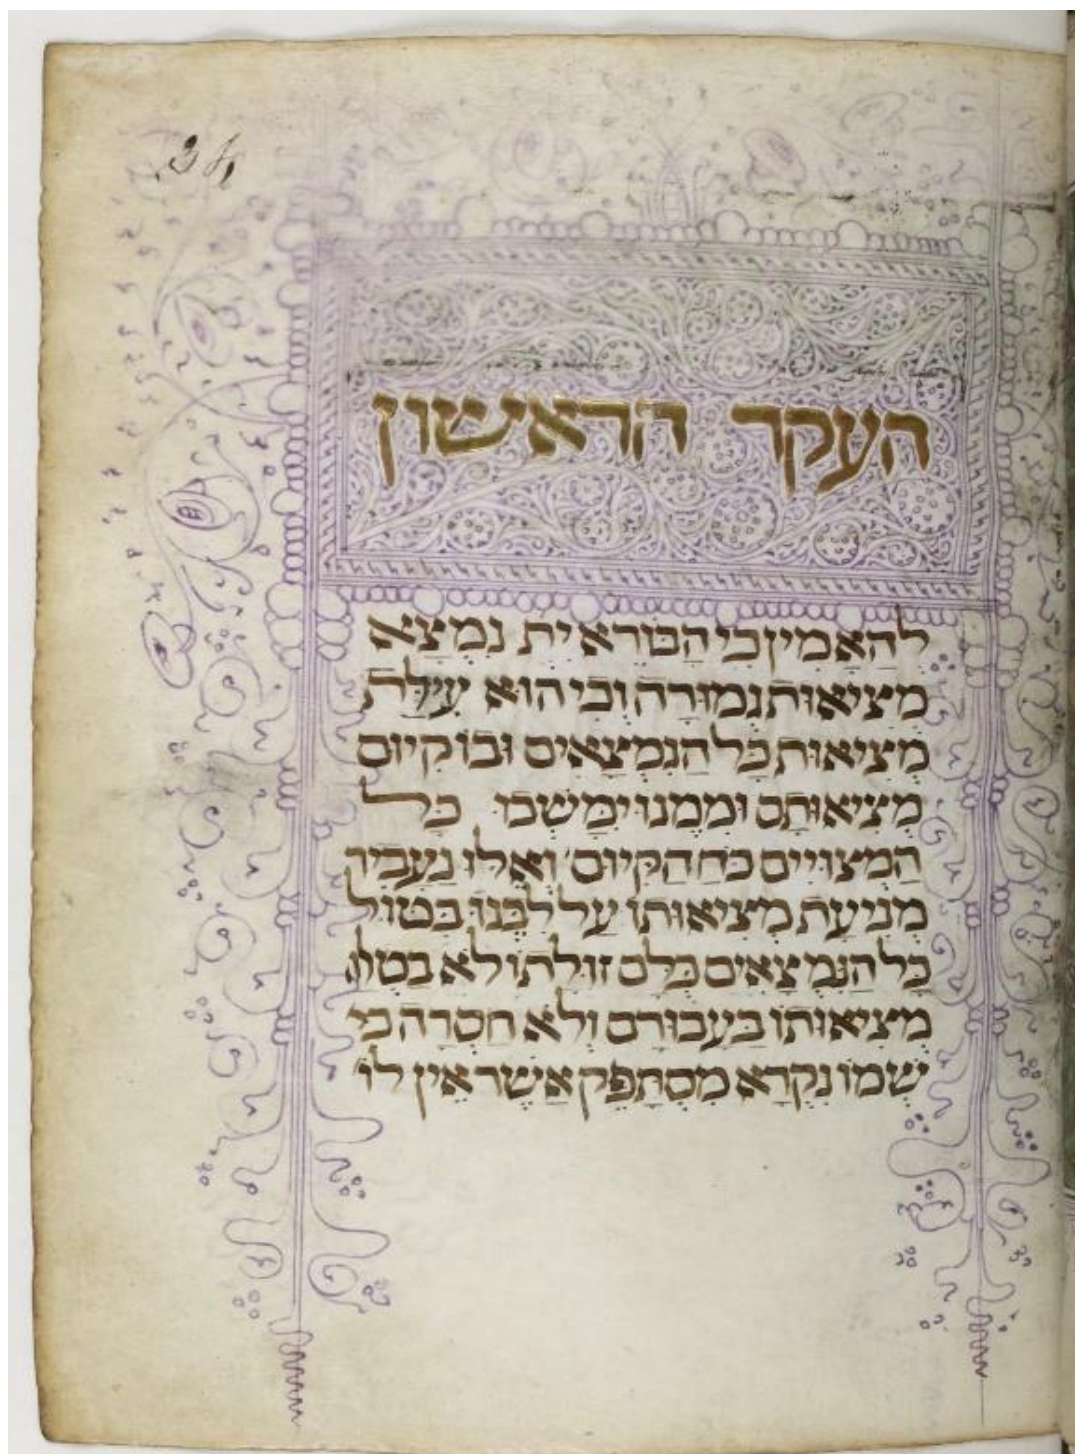 34
העקר הראשון
לְהַאֲמִין כִּי הַבּוֹרֵא יִת׳ נִמְצָא
מְצִיאוּת גְמוּרָה וְכִי הוּא עִילַּת
מְצִיאוּת כָּל הַנִמְצָאִים וּבוֹ קִיוּם
מְצִיאוּתָם וּמִמֶנוּ יִמָּשְׁכוּ כָּל
הַמְצוּיִים כֹּחַ הַקִּיוּם׳ וְאִלּוּ נַעֲבִיר
מְנִיעַת מְצִיאוּתוֹ עַל לִבֵּנוּ בִּטּוּל
כָּל הַנִּמְצָאִים כֻּלָּם זוּלָתוֹ לֹא בִטּוּל
מְצִיאוּתוֹ בַּעֲבוּרָם וְלֹא חֲסֵרָה כִּי
שְׁמוֹ נִקְרָא מִסְתַּפֵּק אֲשֶׁר אֵין לוֹ